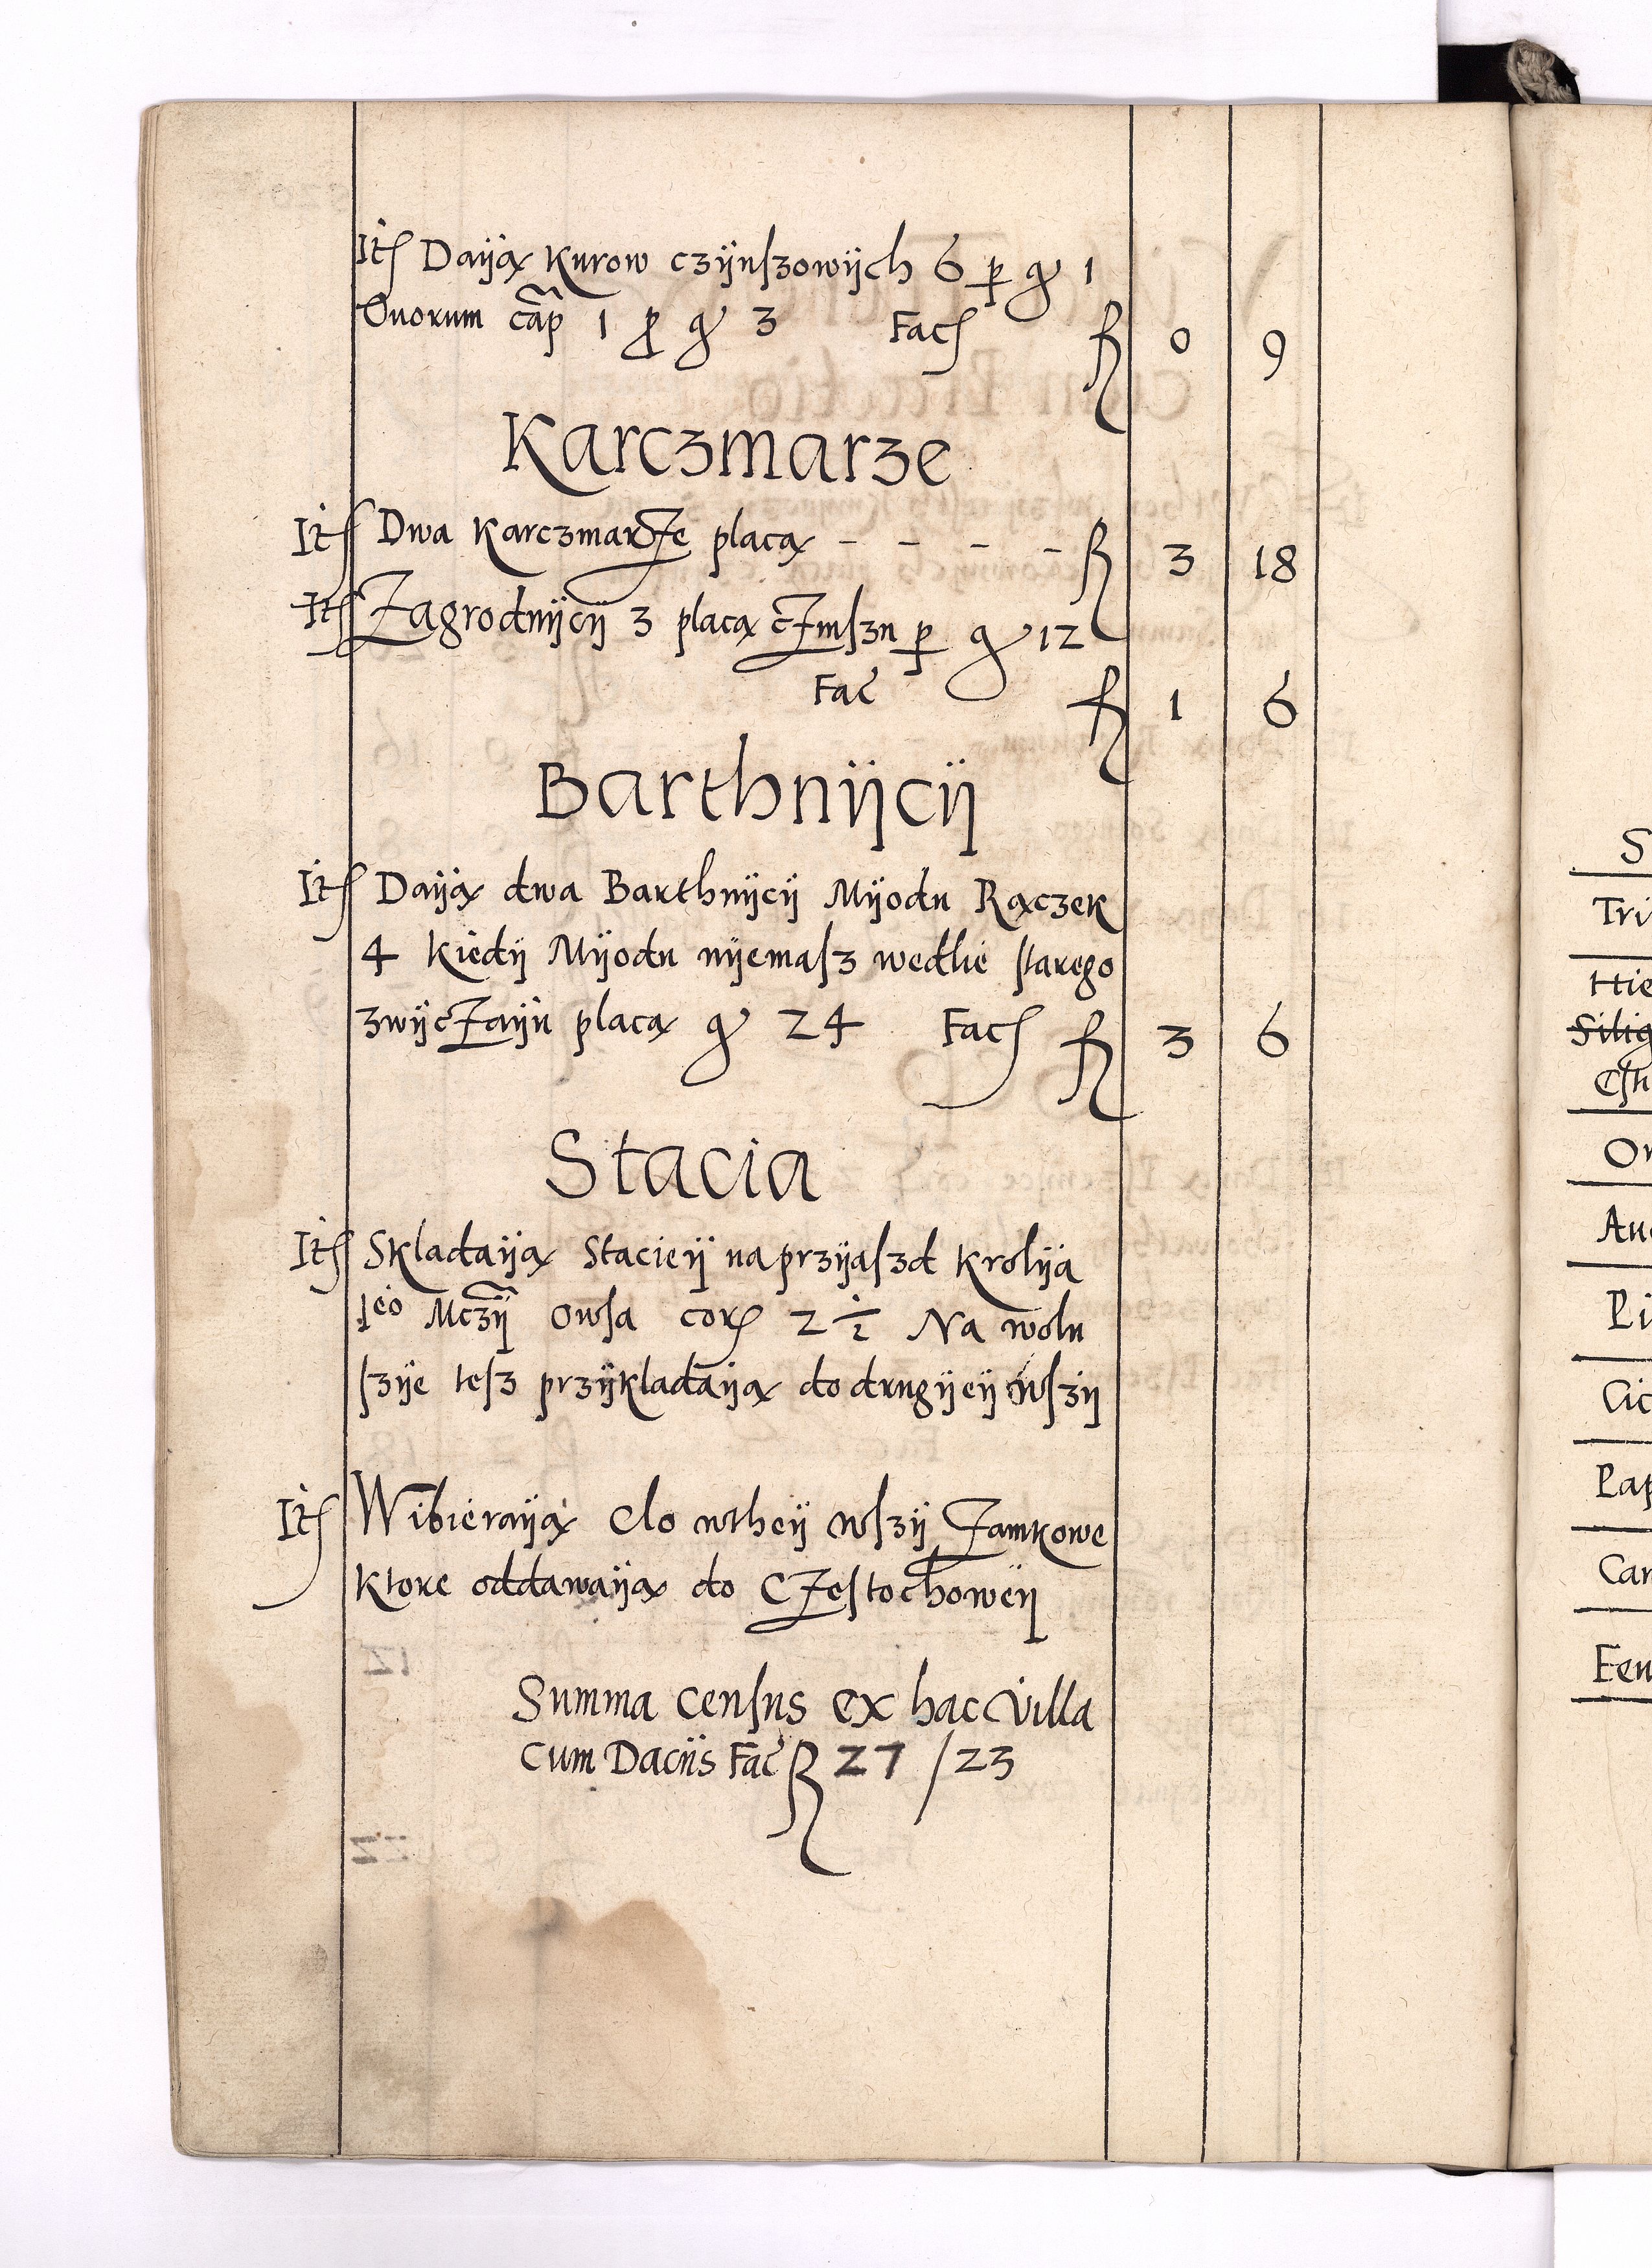 Itꝭ Daÿą Kurow czÿnſzowÿch 6 ꝑ gͬ 1
Ouorum cāp 1 ꝑ gͬ 3 Facꝭ fl 0 9
Karczmarze
Itꝭ Dwa Karczmarze placą - - - - fl 3 18
Itꝭ Zagrodnÿcÿ 3 placą czinſzu ꝑ gͬ 12
Fac fl 1 6
Barthnÿcÿ
Itꝭ Daÿą dwa Barthnÿcÿ Mÿodu Rączek
4 Kiedÿ Mÿodu nÿemaſz wedlie ſtarego
zwÿczaÿu placą gͬ 24 Facꝭ fl 3 6
Stacia
Itꝭ Skladaÿą Stacieÿ na przÿaſzd Krolÿa
Ieo Mczÿ Owſa corꝭ 2 1/2 Na wolu
ſzÿe teſz przÿkladaÿą do drugÿeÿ wſzÿ
Itꝭ Wibieraÿą Clo wtheÿ wſzÿ Zamkowe
Ktore oddawaÿą do Czeſtochoweÿ
Summa cenſus ex hac Villa
cum Daciis Fac fl 27 / 23
S
Tri
Hie
Silig
Or